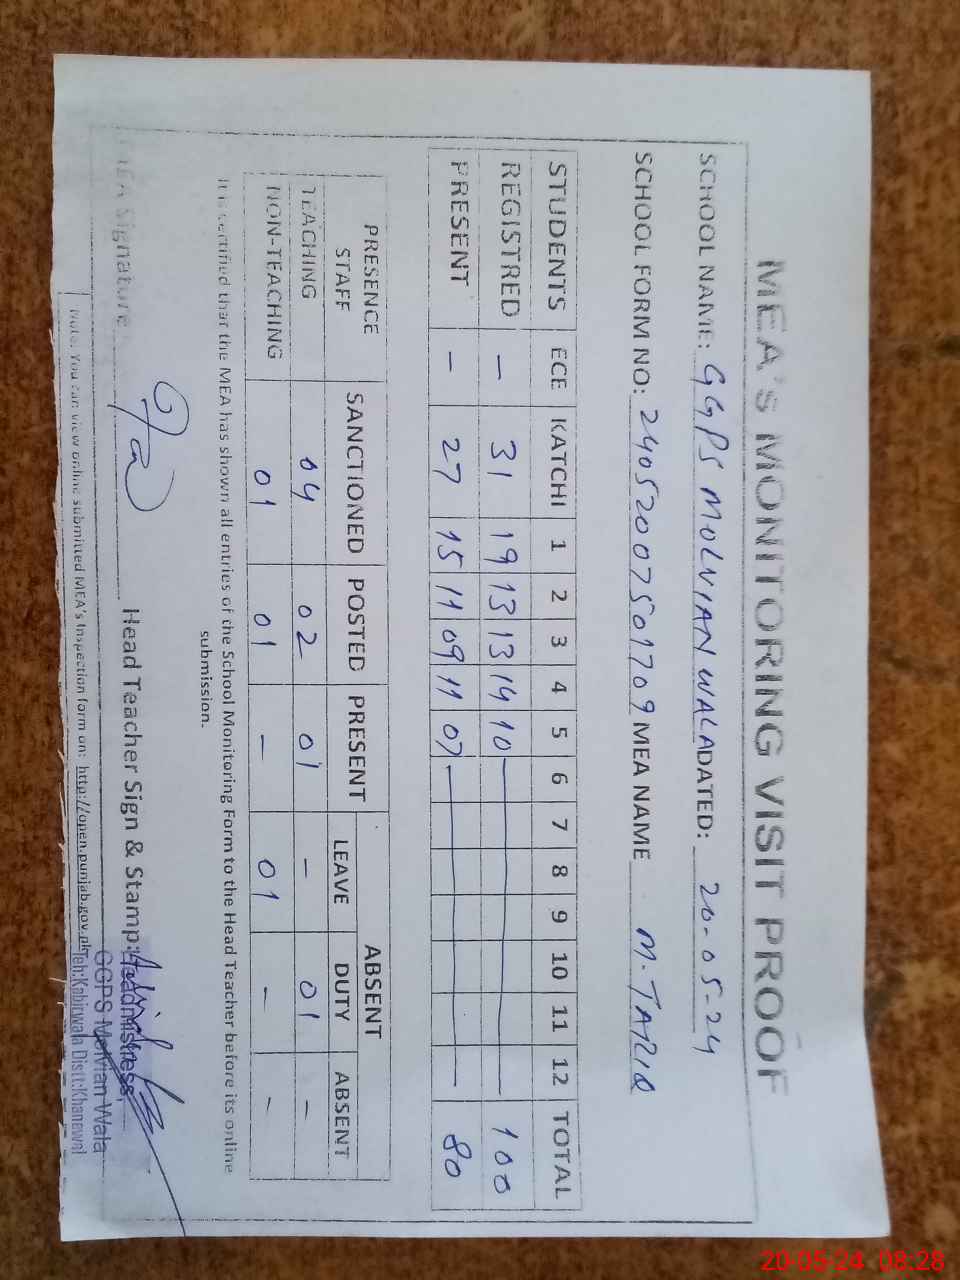 MEA'S MONITORING VISIT PROOF
SCHOOL NAME: GGPS MOLVIAN WALA DATED: 20-05-24
SCHOOL FORM NO: 24052007501709 MEA NAME M. TARIQ
STUDENTS ECE KATCHI 1 2 3 4 5 6 7 8 9 10 11 12 TOTAL
REGISTRED — 31 19 13 13 14 10 — 100
PRESENT — 27 15 11 09 11 07 — 80
PRESENCE STAFF SANCTIONED POSTED PRESENT ABSENT
LEAVE DUTY ABSENT
TEACHING 04 02 01 — 01 —
NON-TEACHING 01 01 — 01 — —
It is certified that the MEA has shown all entries of the School Monitoring Form to the Head Teacher before its online
submission.
MEA Signature Head Teacher Sign & Stamp:
Headmistress,
GGPS Molvian Wala
Teh:Kabirwala Distt:Khanewal
Note: You can view online submitted MEA's Inspection form on: http://open.punjab.gov.pk
20-05-24 08:28